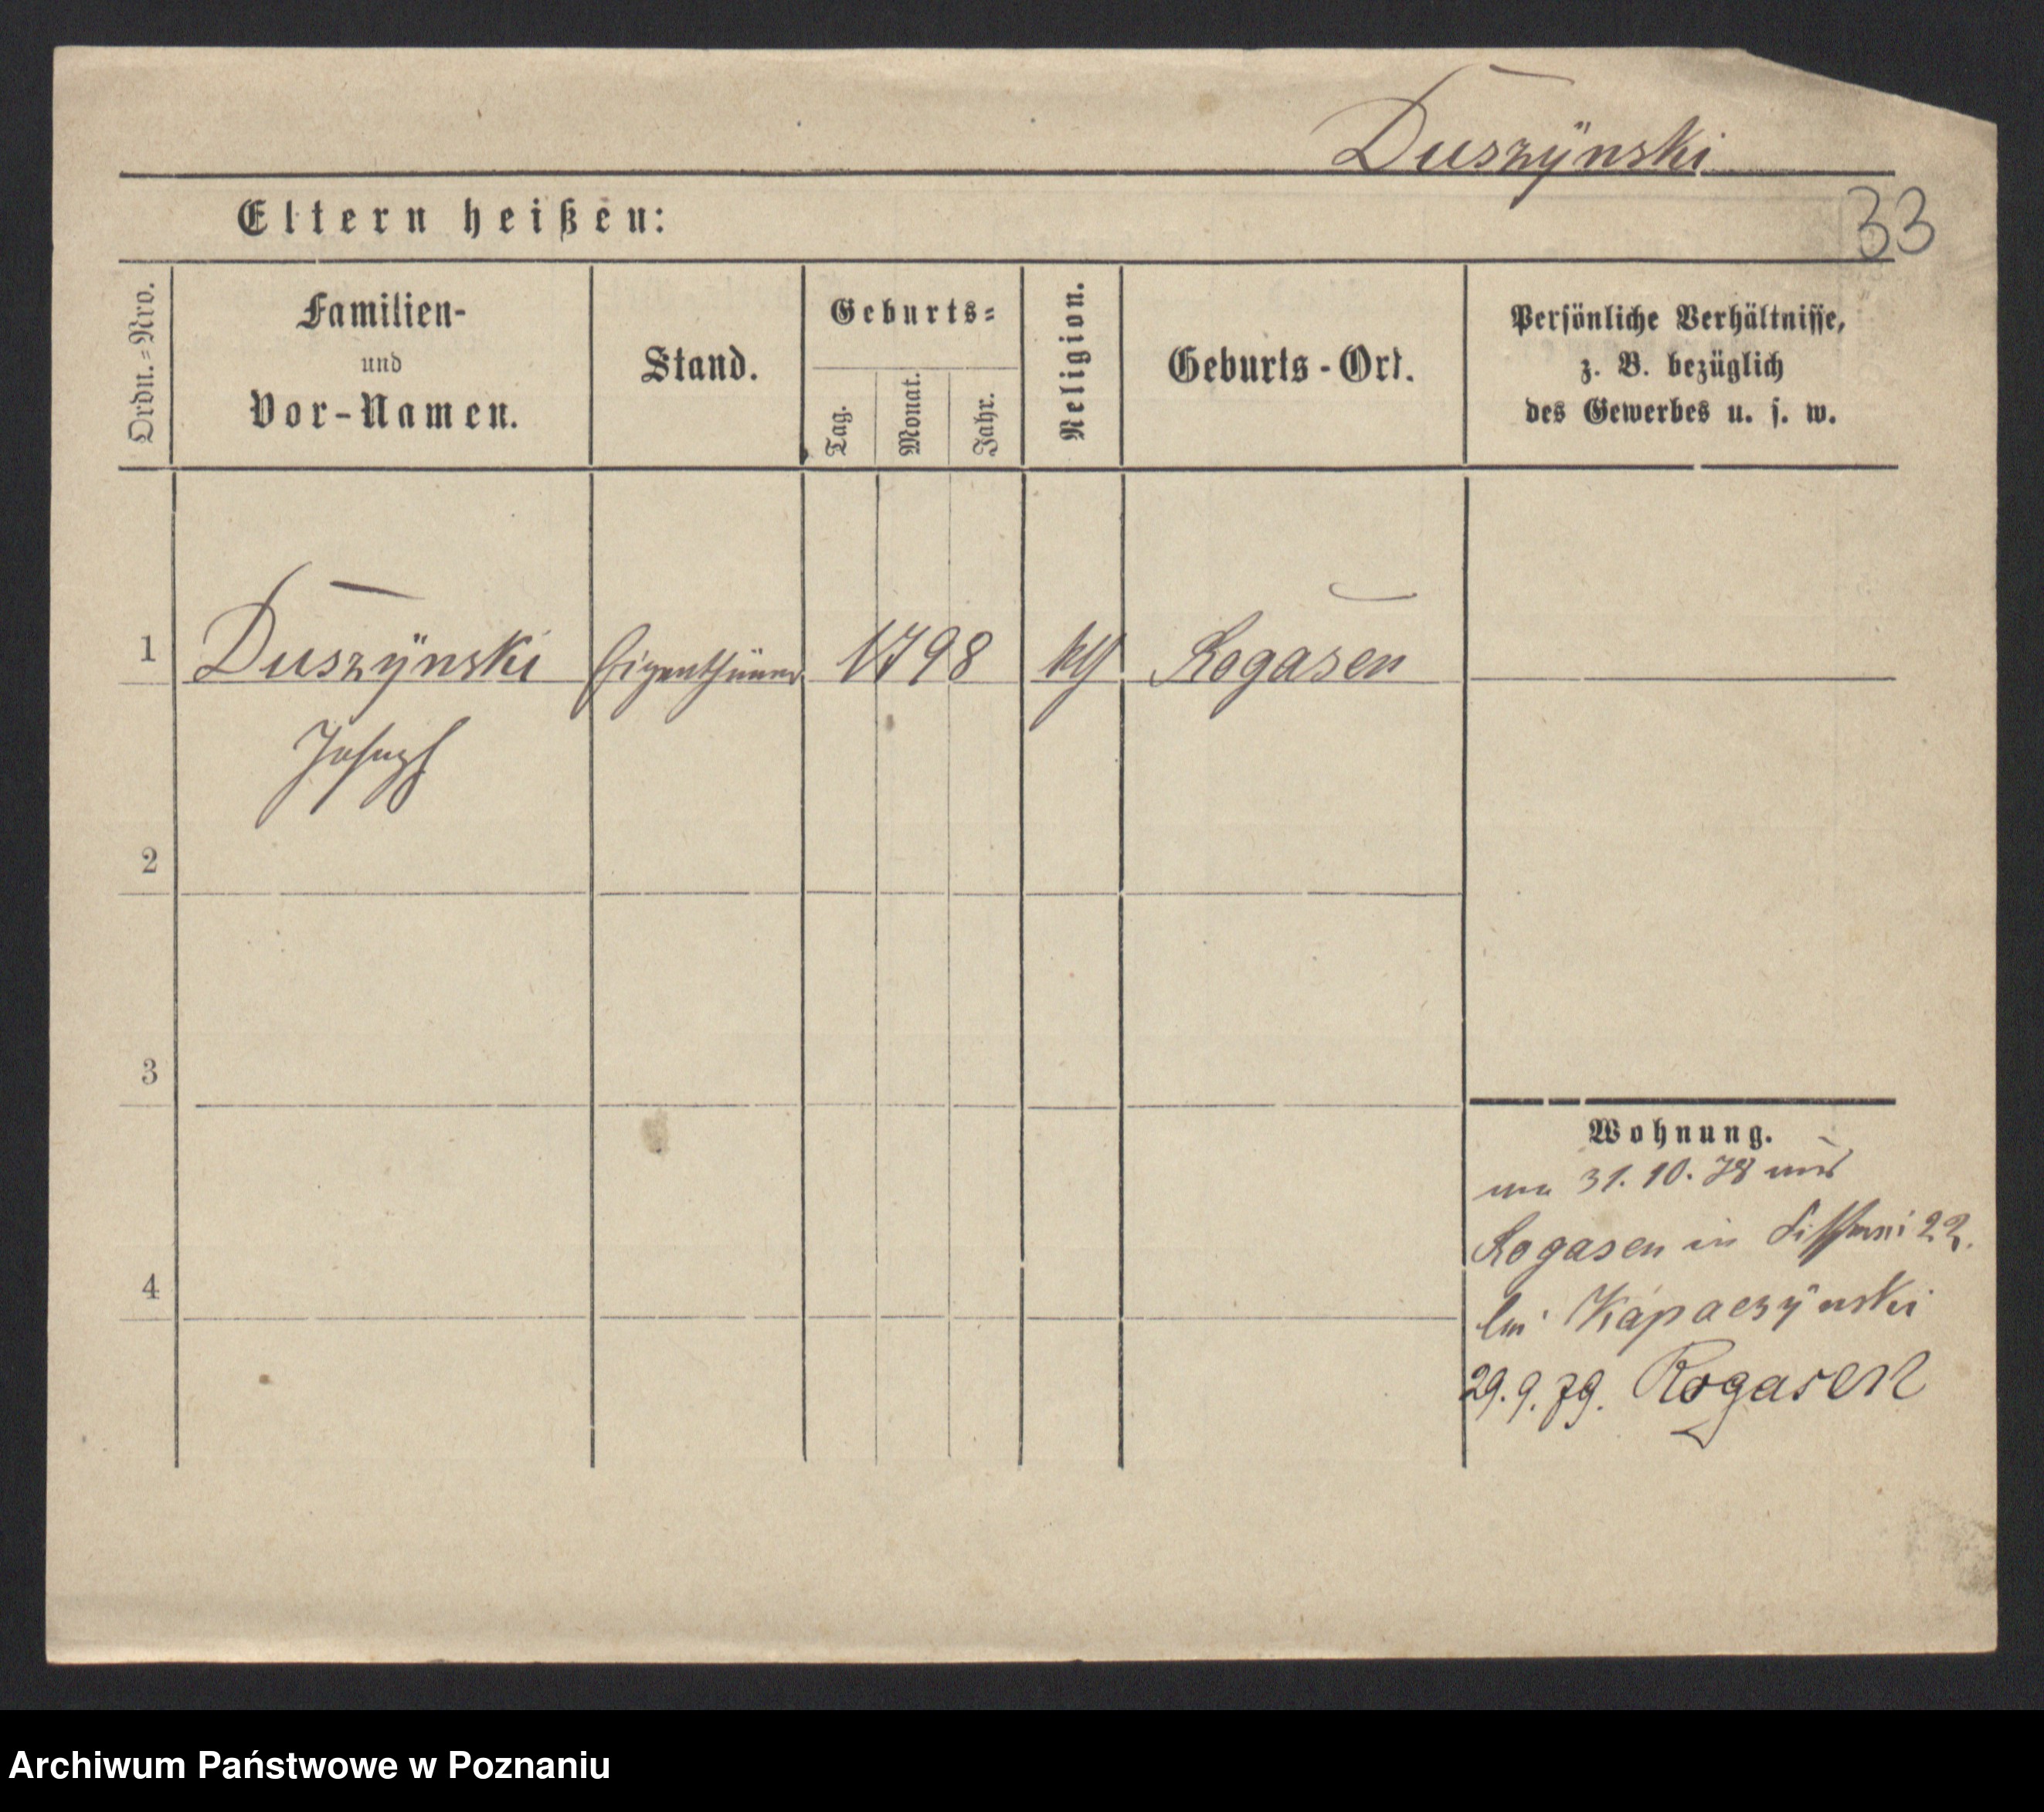 Duszÿnski
33
Eltern heißen:
Ordn.=Nro.
Familien-
und
Vor-Namen.
Stand.
Geburts=
Tag.
Monat.
Jahr.
Religion.
Geburts-Ort.
Persönliche Verhältnisse,
z. B. bezüglich
des Gewerbes u. s. w.
1
Duszÿnski
Eigenthümer
1798
kth
Rogasen
Joseph
2
3
4
Wohnung.
31.10.78 aus
Rogasen in 22.
bei Kapaczÿnski
29.9.79. Rogasen
Archiwum Państwowe w Poznaniu